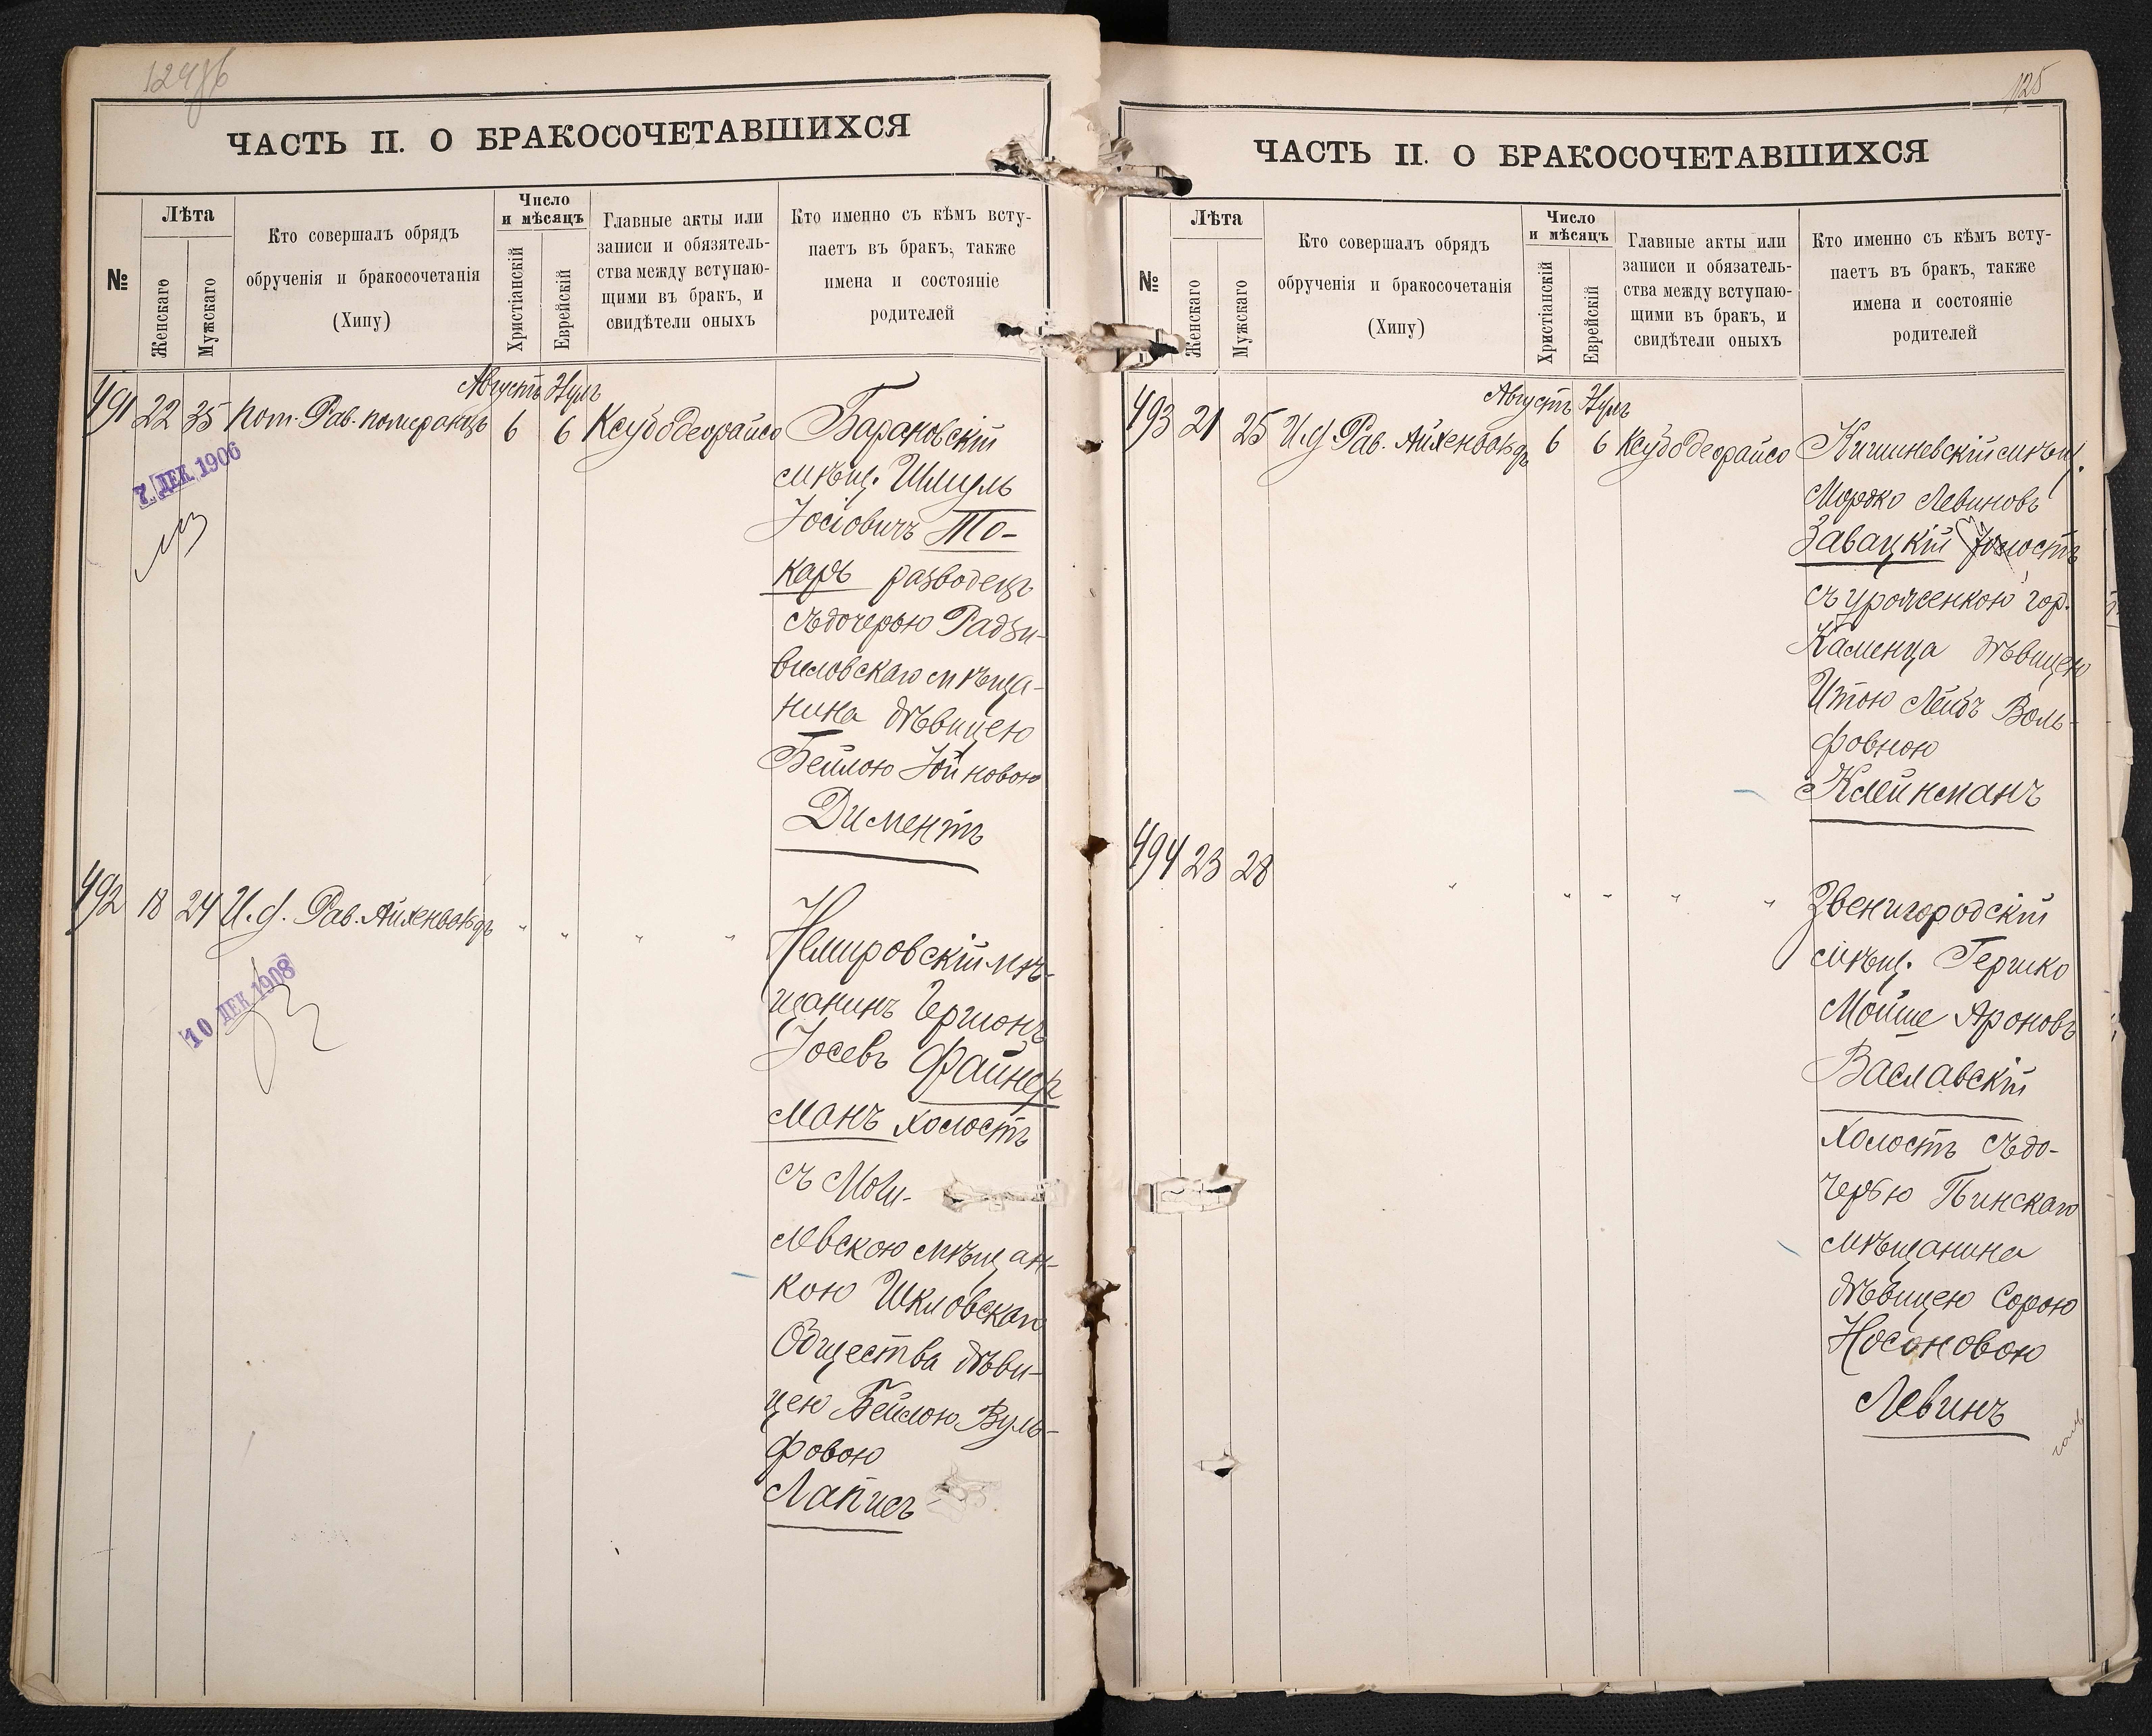 124об
ЧАСТЬ II. О БРАКОСОЧЕТАВШИХСЯ
№
Лѣта
Женскаго
Мужскаго
Кто совершалъ обрядъ
обрученія и бракосочетанія
(Хипу)
Число
и мѣсяцъ
Христіанскій
Еврейскій
Главные акты или
записи и обязятель-
ства между вступаю-
щими въ бракъ, и
свидѣтели оныхъ
Кто именно съ кѣмъ всту-
паетъ въ бракъ, также
имена и состояніе
родителей
Августъ
491 22 35 Пом. Рав. Померанцъ 6 6 Ксубодеорайсо Барановскій
7 ДЕК 1906
мѣщ. Шмуль
Іосіовичъ То-
карь разводецъ
съ дочерью Радзи-
виловскаго мѣща-
нина дѣвицею
Бейлою Іойновою
Диментъ
492 18 24 И.д. Рав. Айхенвальдъ " " " "
10 ДЕК 1908
Немировскій мѣ-
щанинъ Гершонъ
Іосевъ Файнер
манъ холостъ
съ Моги-
левскою мѣщан-
кою Шкловскаго
Общества дѣви-
цею Бейлою Вуль-
фовою
Лаписъ
125
ЧАСТЬ II. О БРАКОСОЧЕТАВШИХСЯ
№
Лѣта
Женскаго
Мужскаго
Кто совершалъ обрядъ
обрученія и бракосочетанія
(Хипу)
Число
и мѣсяцъ
Христіанскій
Еврейскій
Главные акты или
записи и обязатель-
ства между вступаю-
щими въ бракъ, и
свидѣтели оныхъ
Кто именно съ кѣмъ всту-
паетъ въ бракъ, также
имена и состояніе
родителей
Августъ
493 21 25 И.д. Рав. Айхенвальдъ 6 6 Ксубодеорайсо Кишиневскій мѣщ.
Мордко Левиновъ
Завацкій холостъ
съ уроженкою гор.
Каменца дѣвицею
Итою Лейбъ Воль-
фовною
Клейнманъ
494 23 28 " " " " "
Звенигородскій
мѣщ. Гершко
Мойше Ароновъ
Заславскій
холостъ съ до-
черью Пинскаго
мѣщанина
дѣвицею Сорою
Носоновою
Левинъ